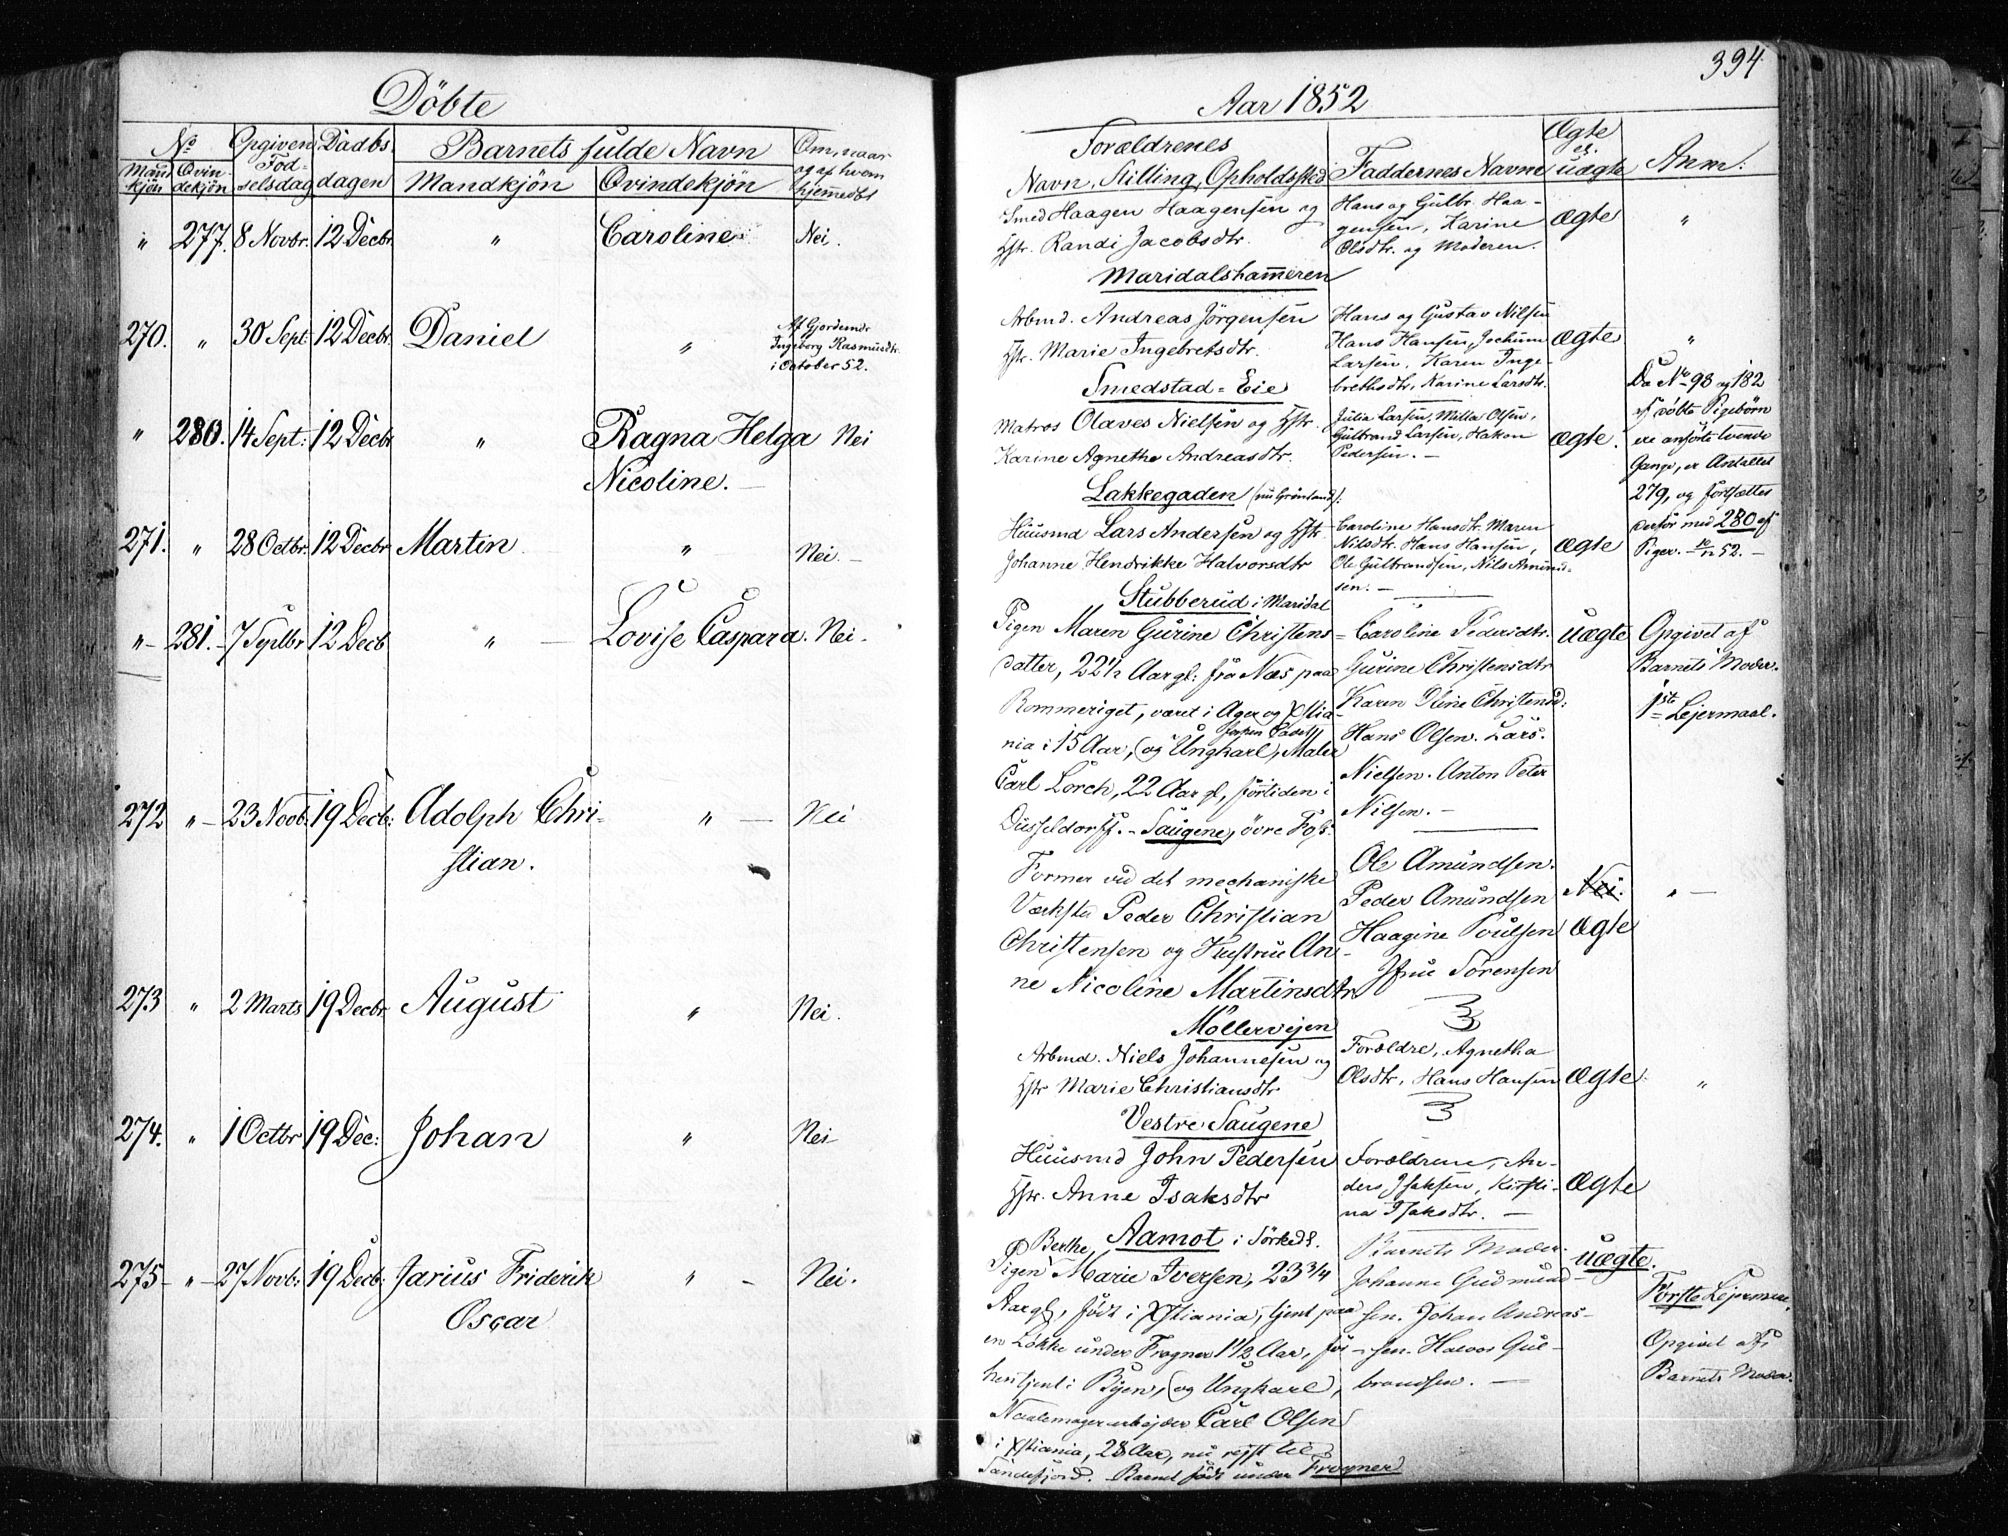 Döbte
No
Opgiven Födselsdag
Daabsdagen
Barnets fulde Navn
Om, naar og af hvem hjemmedbt
Mandkjön
Qvindekjön
Mandkjön
Qvindekjön
" 277. 8 Novbr. 12 Decbr. " Caroline Nei.
270. " 30 Sept: 12 Decbr. Daniel " Af Gjordemdr
Ingeborg Rasmusdtr.
i October 52.
" 280. 14 Sept: 12 Decbr " Ragna Helga Nei
Nicoline. —
271. " 28 Octbr. 12 Decbr Martin " Nei. —
" — 281. — 7 Septbr 12 Decb " — Lovise Caspara. Nei.
272 " — 23 Novb: 19 Decb: Adolph Chri- " — Nei
stian.
273 " 2 Marts 19 Decbr. August " Nei.
274. " 1 Octbr 19 Dec: Johan " Nei
275 — " — 27 Novb: 19 Decb: Jarius Friderik " — Nei.
Oscar
394
Aar 1852
Forældrenes
Navn, Stilling, Opholdssted
Faddernes Navne
Ægte el. uægte
Anm:
Smed Haagen Haagensen og
Hstr. Randi Jacobsdtr.
Maridalshammeren
Hans og Gulbr. Haa-
gensen, Karine
Olsdtr. og Moderen.
Ægte "
Arbmd. Andreas Jörgensen
Hstr. Marie Ingebretsdtr.
Smedstad-Eie
Hans og Gustav Nilsen
Hans Hansen, Jochum
Larsen, Karen Inge-
brethsdtr, Karine Larsdtr.
Ægte "
Matros Olaves Nielsen og Hstr.
Karine Agnethe Andreasdtr.
Lakkegaden (nu Grönland):
Julia Larsen, Milla Olsen,
Gulbrand Larsen, Hakon
Pedersen. —
Ægte.
Da No 98 og 182
af döbte Pigebörn
ere anförte tvende
Gange, er Antallet
279, og fortsættes
derfor med 280 af
Piger. 52. —
Huusmd Lars Andersen og Hstr.
Johanne Hendrikke Halvorsdtr
Stubberud i Maridal
Caroline Hansdtr. Maren
Nilsdtr. Hans Hansen,
Ole Gulbrandsen, Nils Amund-
sen. —
Ægte
Pigen Maren Gurine Christens-
datter, 22½ Aar gl: fra Næs paa
Rommeriget, været i Ager og Xstia-
nia i 15 Aar, (og Ungkarl, Maler
Carl Lorch, 22 Aar gl, fortiden i
Düsseldorff. — Saugene, övre Fos:
Caroline Pedersdtr.
Gurine Christensdtr
Karen Oline Christensd:
Hans Olsen. Lars.
Nielsen. Anton Peter
Nilsen. —
uægte
Opgivet af
Barnets Moder.
1ste Lejermaal.
Former ved det mechaniske
Værksted Peder Christian
Christensen og Hustrue An-
ne Nicoline Martinsdtr
Möllervejen
Ole Amundsen.
Peder Amundsen
Haagine Poulsen
Jfru Sörensen
Nei.
Ægte
" —
Arbmd. Niels Johannesen og
Hstr Marie Christiansdtr
Vestre Saugene
Forældre, Agnetha
Olsdtr, Hans Hansen
Ægte "
Huusmd John Pedersen
Hstr. Anne Isaksdtr
Aamot i Sörkedl.
Forældrene, An-
ders Isaksen, Kirsti-
na Isaksdtr. —
Ægte
Pigen Berthe Marie Iversen, 23¾
Aar gl, födt i Xstiania, tjent paa
en Lökke under Frogner 1½ Aar, för-
hen tjent i Byen, (og Ungkarl,
Naalemagerarbejder Carl Olsen
i Xstiania, 28 Aar, nu rejst til
Sandefjord. Barnet födt under Frogner
Barnets Moder.
Johanne Gudmund-
sen. Johan Andreas-
sen. Halvor Gul-
brandsen. —
uægte.
Förste Lejermaal,
Opgivet af
Barnets Moder.